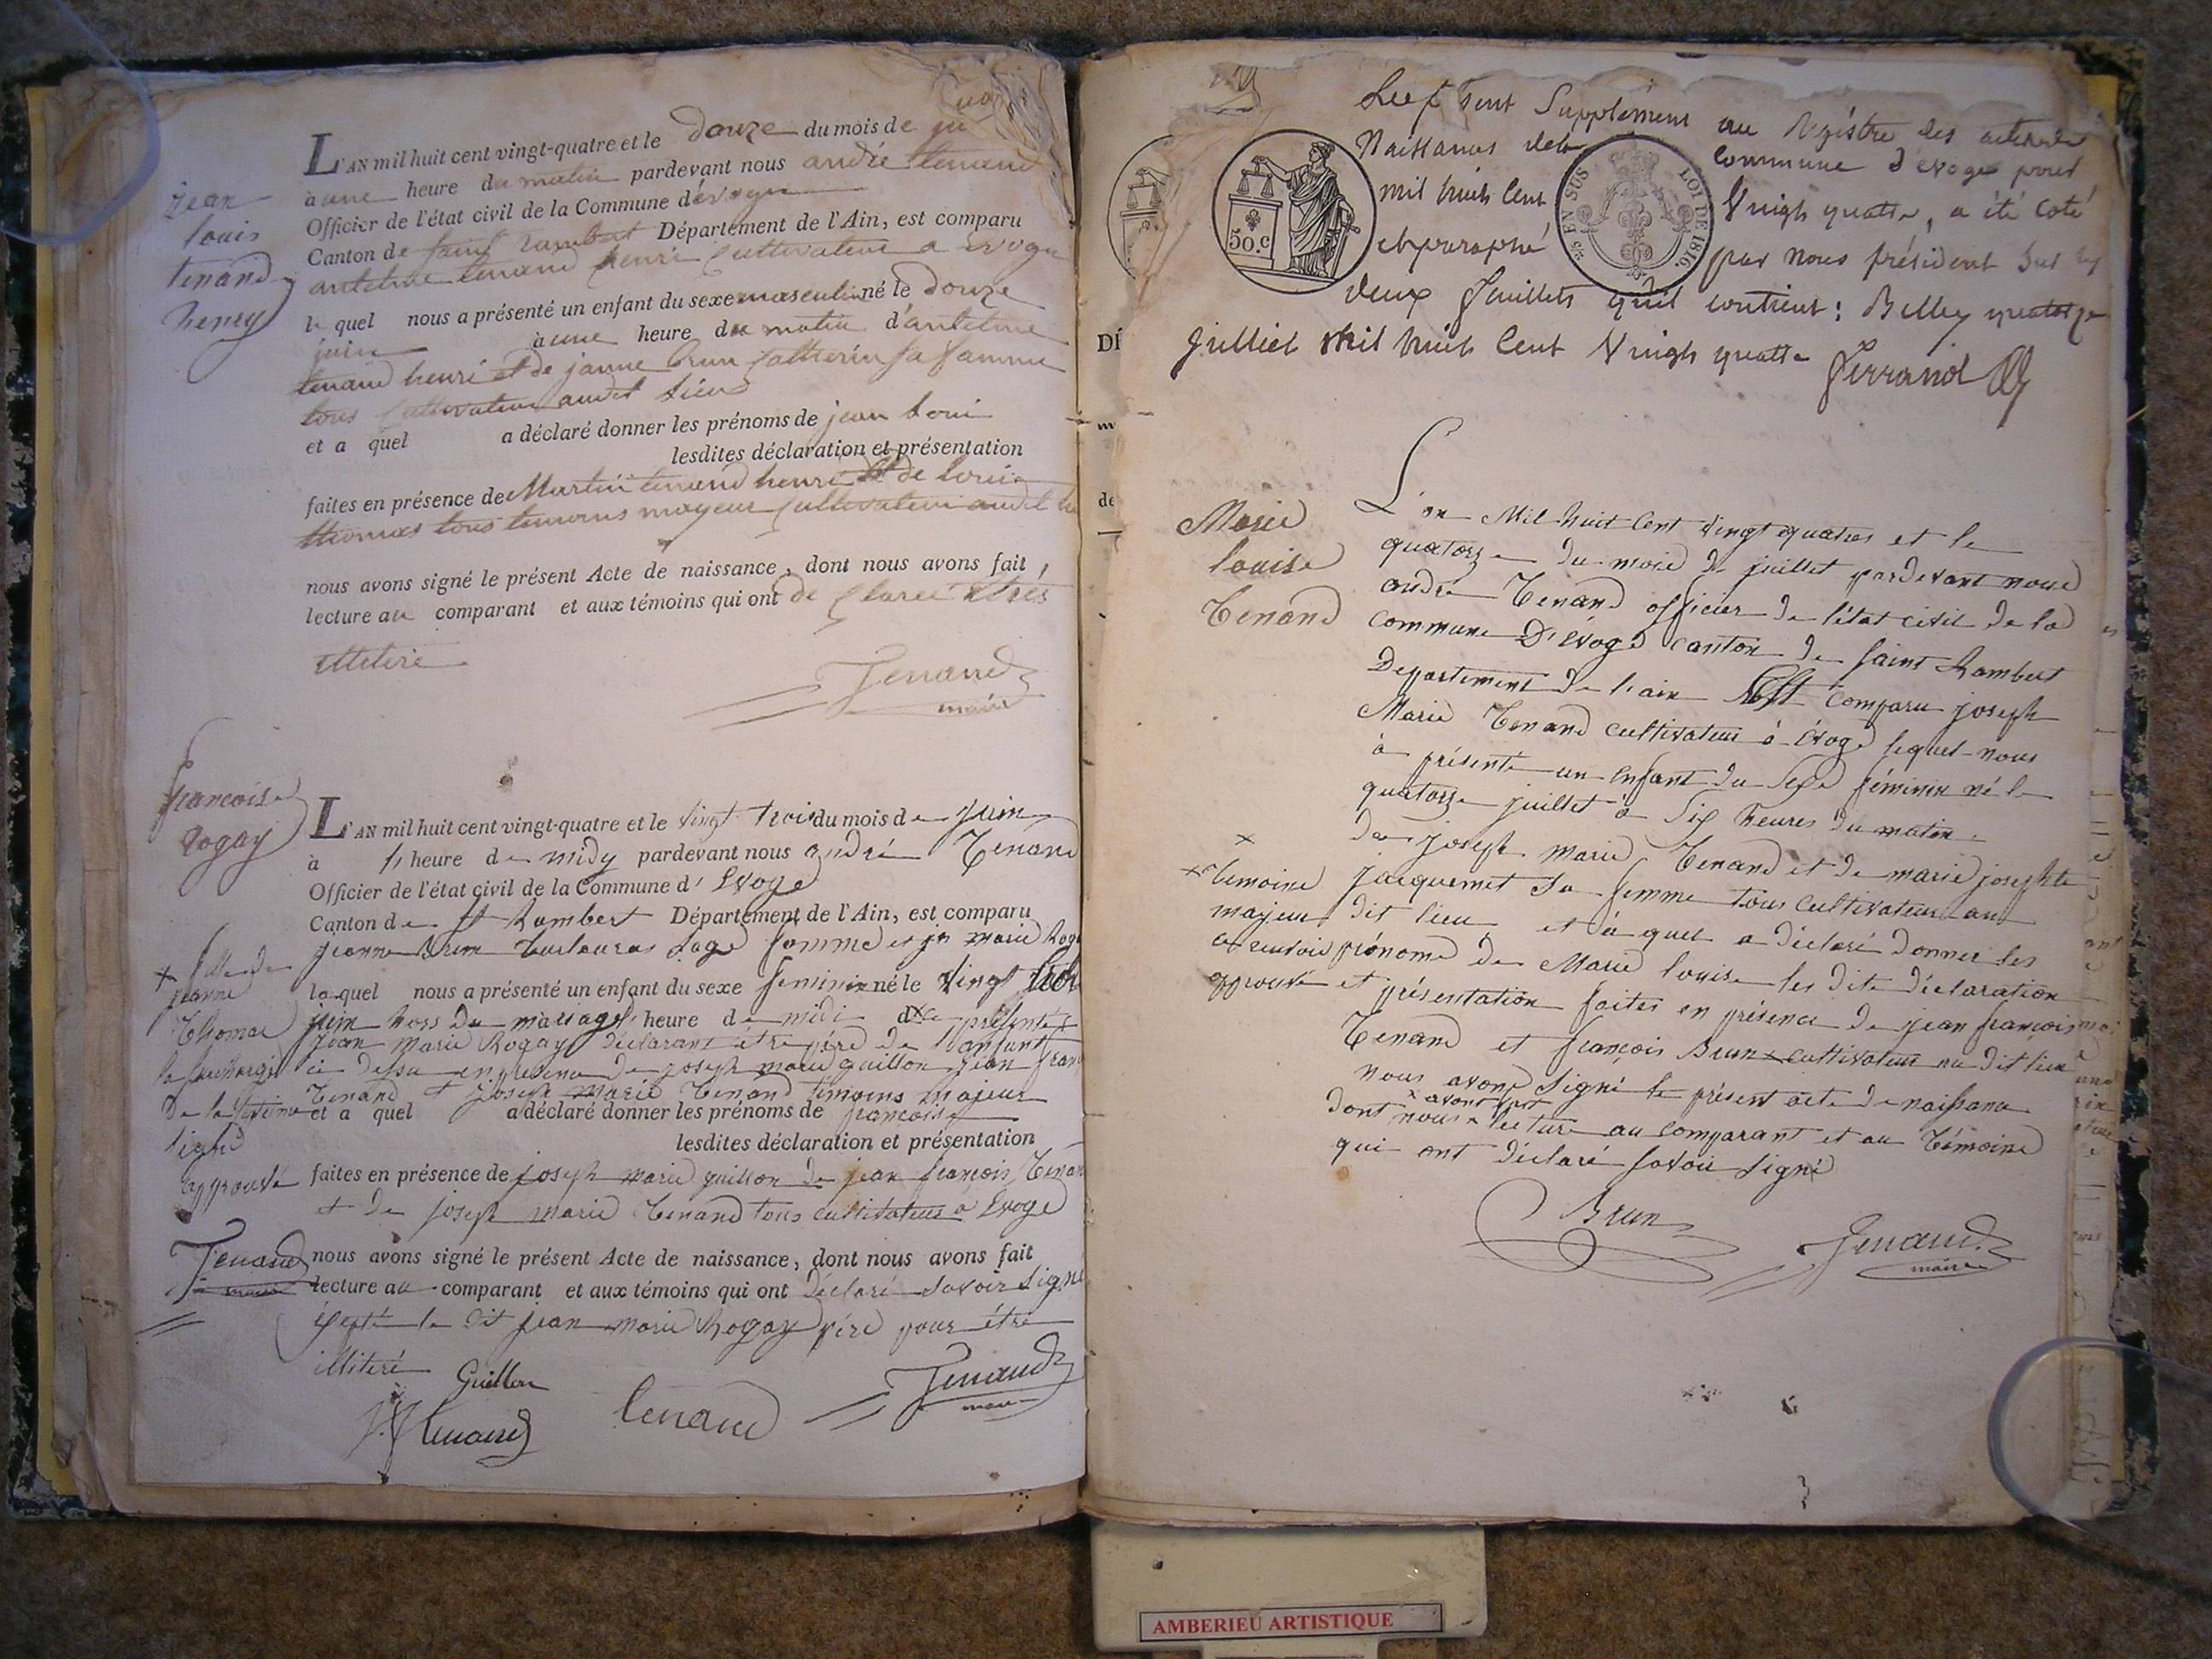 L'AN mil huit cent vingt-quatre et le douze du mois de
à une heure du matin pardevant nous andré tenand
Officier de l'état civil de la Commune d'évoge
Canton de saint rambert Département de l'Ain, est comparu
antelme tenand henri cultivateur a evoge
le quel nous a présenté un enfant du sexe masculin né le douze
juin à une heure du matin d'antelme
tenand henri et de janne brun catherin sa famme
tous cultivateur audit lieu
et a quel a déclaré donner les prénoms de jean loui
lesdites déclaration et présentation
faites en présence de Martin tenand henri et de loui
thomas tous temoins mayeur cultivateur audit
nous avons signé le présent Acte de naissance, dont nous avons fait
lecture au comparant et aux témoins qui ont de claré
Tenand
maire
jean
louis
tenand
henry
francoise
rogay
L'AN mil huit cent vingt-quatre et le vingt trois du mois de juin
à heure de midy pardevant nous andré Tenand
Officier de l'état civil de la Commune d'Evoge
Canton de St Rambert Département de l'Ain, est comparu
jeanne Brun sage femme et jn marie Roga
laquel nous a présenté un enfant du sexe feminin né le vingt trois
juin hors du mariage heure de midi
jean marie Rogay déclarant être père de l'anfant
ci dessu en presence de joseph marie guillon jean fran
Tenand et joseph marie Tenand temoins majeur
et a quel a déclaré donner les prénoms de francoise
lesdites déclaration et présentation
faites en présence de joseph marie guillon de jean françois Tenan
et de joseph marie Tenand tous cultivateur a Evoge
nous avons signé le présent Acte de naissance, dont nous avons fait
lecture au comparant et aux témoins qui ont déclaré savoir signé
le dit jean marie Rogay père pour être
illiteré
Guillon
Tenand
Tenand
Tenand
maire
x fille de
jeanne
Thomas
approuvé
Tenand
maire
sent Supplément au Régistre des actes de
Naissances de la commune d'Evoge pour
mil huit cent Vingt quatre, a été coté
et paraphé par nous président sur les
deux feuillets qu'il contient : Belley quatorze
juilliet mil huit cent Vingt quatre
Ferrand
50.C
EN SUS
LOI DE 1816.
Marie
louise
Tenand
L'an mil huit cent vingt quatres et le
quatorze du mois de juillet pardevant nous
andré Tenand officier de l'état civil de la
commune D'évoge canton de saint Rambert
Departement de l'ain est comparu joseph
Marie Tenand cultivateur à Evoge lequel nous
à présenté un enfant du sexe féminin né le
quatorze juillet à six heures du matin
de joseph marie Tenand et de marie josephte
jacquemet sa femme tous cultivateur au
dit lieu et à quel a déclaré donner les
prénoms de Marie louise les dite déclaration
et présentation faites en présence de jean françois
Tenand et françois Brun x cultivateur au dit lieu
nous avons signé le présent acte de naissance
x avons fait
dont nous x lecture au comparant et au Témoins
qui ont déclaré savoir signé
x temoins
majeur
approuvé
Brun
Tenand
maire
AMBERIEU ARTISTIQUE